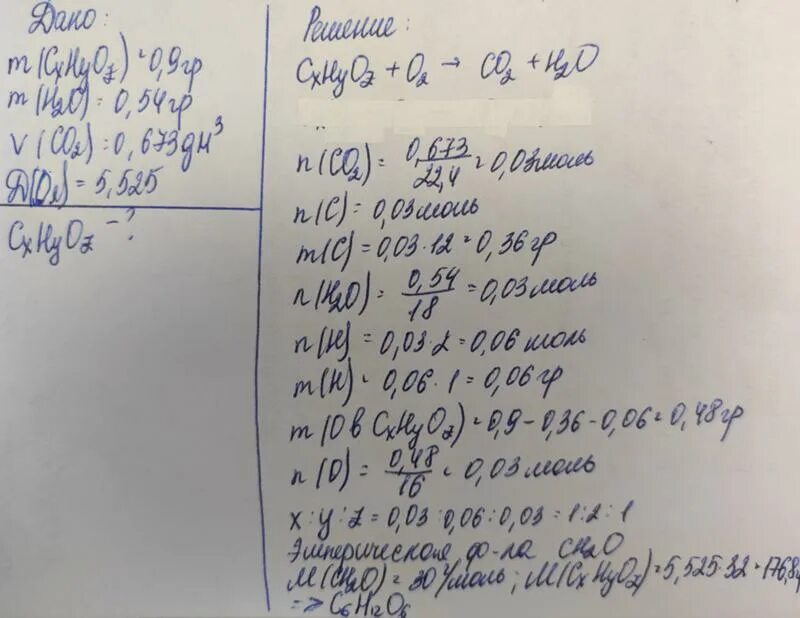 Дано:
m(CxHyOz) = 0,9гр
m(H2O) = 0,54гр
V(CO2) = 0,673дм³
Д(O2) = 5,525
CxHyOz - ?
Решение:
CxHyOz + O2 → CO2 + H2O
n(CO2) = 0,673/22,4 = 0,03моль
n(C) = 0,03моль
m(C) = 0,03·12 = 0,36гр
n(H2O) = 0,54/18 = 0,03моль
n(H) = 0,03·2 = 0,06моль
m(H) = 0,06·1 = 0,06гр
m(O в CxHyOz) = 0,9 - 0,36 - 0,06 = 0,48гр
n(O) = 0,48/16 = 0,03моль
x:y:z = 0,03:0,06:0,03 = 1:2:1
Эмперическая ф-ла CH2O
M(CH2O) = 30 г/моль; M(CxHyOz) = 5,525·32 = 176,8
=> C6H12O6